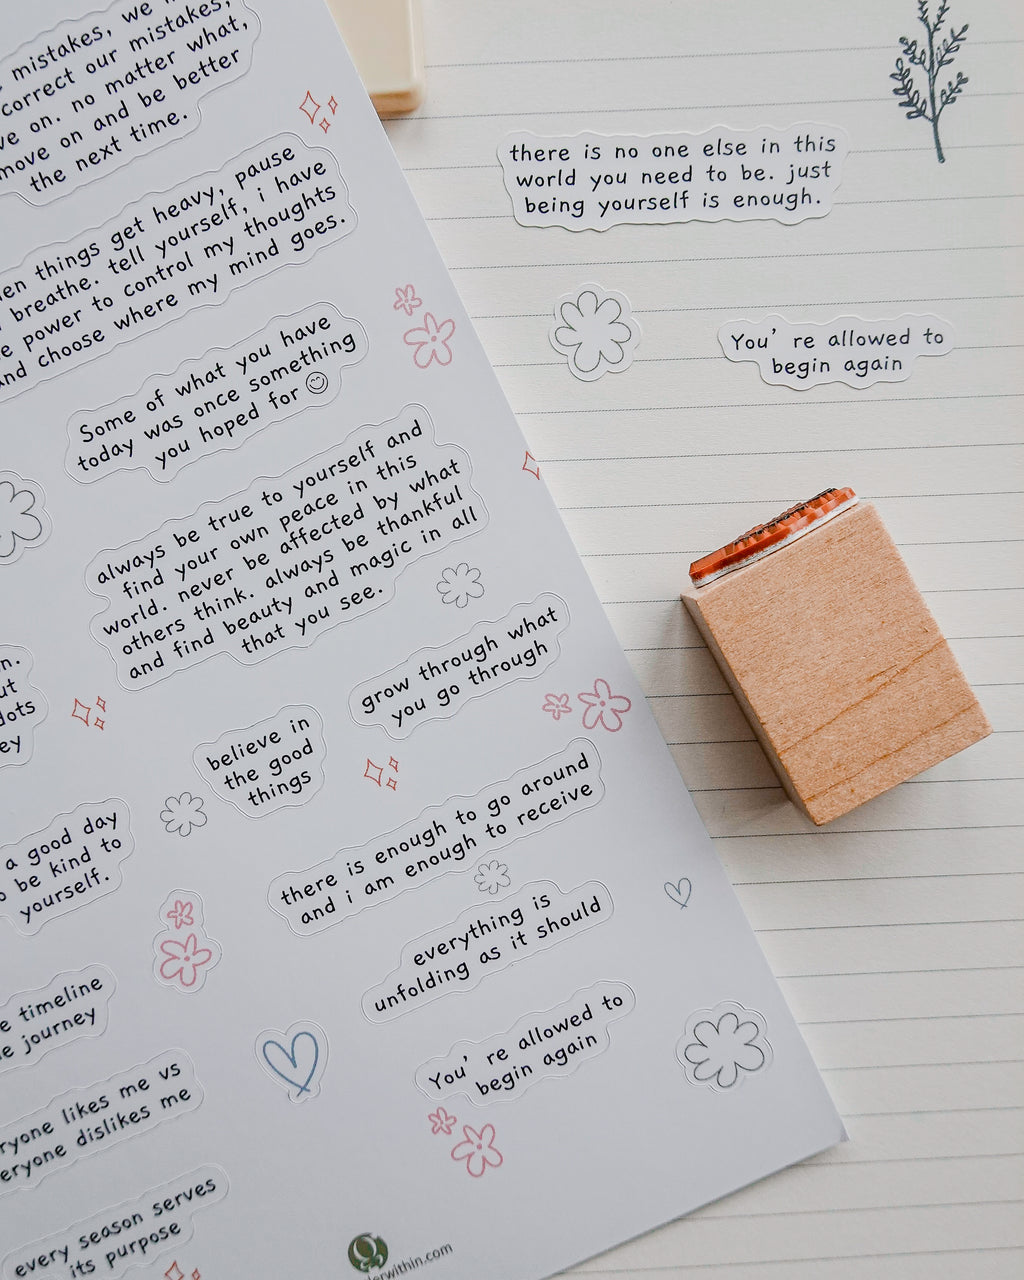 mistakes, we
correct our mistakes,
on. no matter what,
move on and be better
the next time.
things get heavy, pause
breathe. tell yourself, i have
power to control my thoughts
and choose where my mind goes.
Some of what you have
today was once something
you hoped for
always be true to yourself and
find your own peace in this
world. never be affected by what
others think. always be thankful
and find beauty and magic in all
that you see.
grow through what
you go through
believe in
the good
things
a good day
be kind to
yourself.
there is enough to go around
and i am enough to receive
everything is
unfolding as it should
timeline
journey
You're allowed to
begin again
likes me vs
dislikes me
every season serves
its purpose
there is no one else in this
world you need to be. just
being yourself is enough.
You're allowed to
begin again